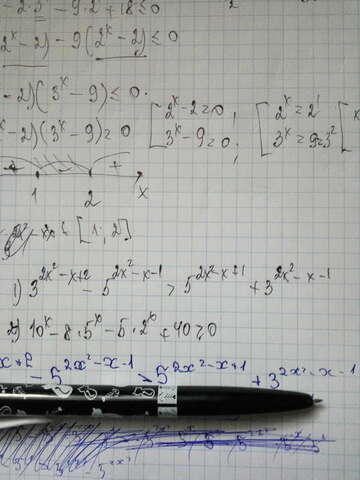 - 2·3ˣ - 9·2ˣ + 18 ≤ 0
2ˣ - 2) - 9(2ˣ - 2) ≤ 0
- 2)(3ˣ - 9) ≤ 0. [2ˣ - 2 = 0; [2ˣ = 2¹
ˣ - 2)(3ˣ - 9) = 0 3ˣ - 9 = 0; 3ˣ = 9 = 3²
+ - +
1 2 x
[1; 2]
1) 3^(2x²-x+2) - 5^(2x²-x-1) > 5^(2x²-x+1) + 3^(2x²-x-1)
2) 10ˣ - 8·5ˣ - 5·2ˣ + 40 ≥ 0
x+2 - 5^(2x²-x-1) > 5^(2x²-x+1) + 3^(2x²-x-1)